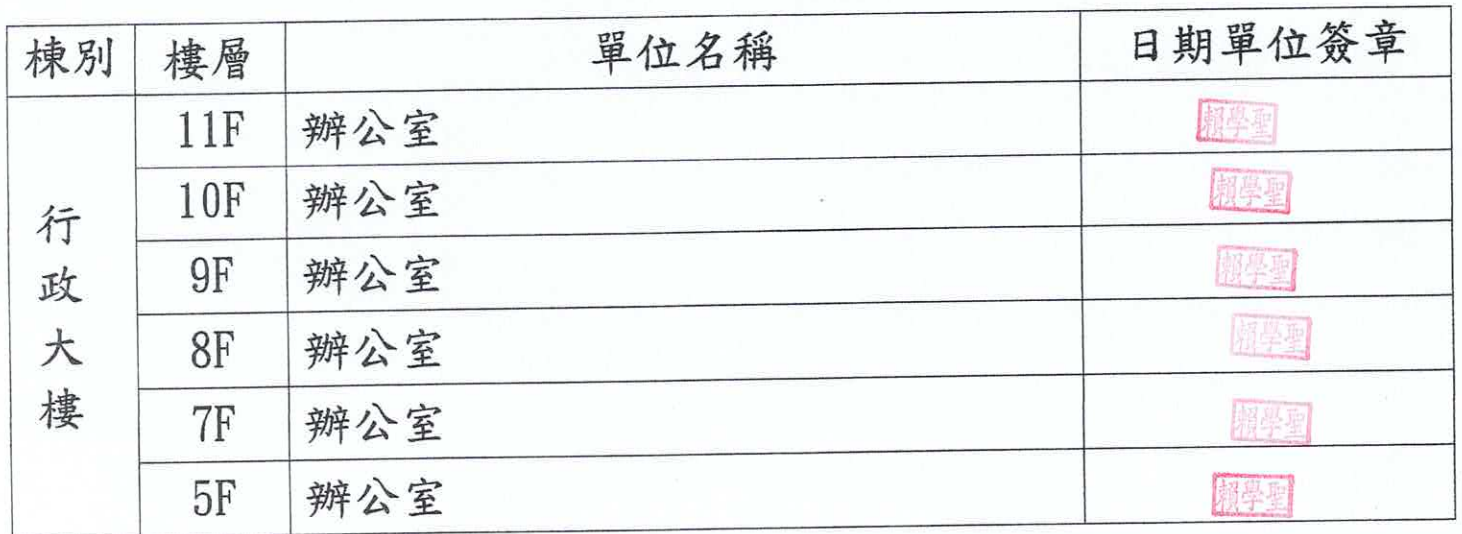 棟別 樓層 單位名稱 日期單位簽章
行政大樓
11F 辦公室 賴學聖
10F 辦公室 賴學聖
9F 辦公室 賴學聖
8F 辦公室 賴學聖
7F 辦公室 賴學聖
5F 辦公室 賴學聖